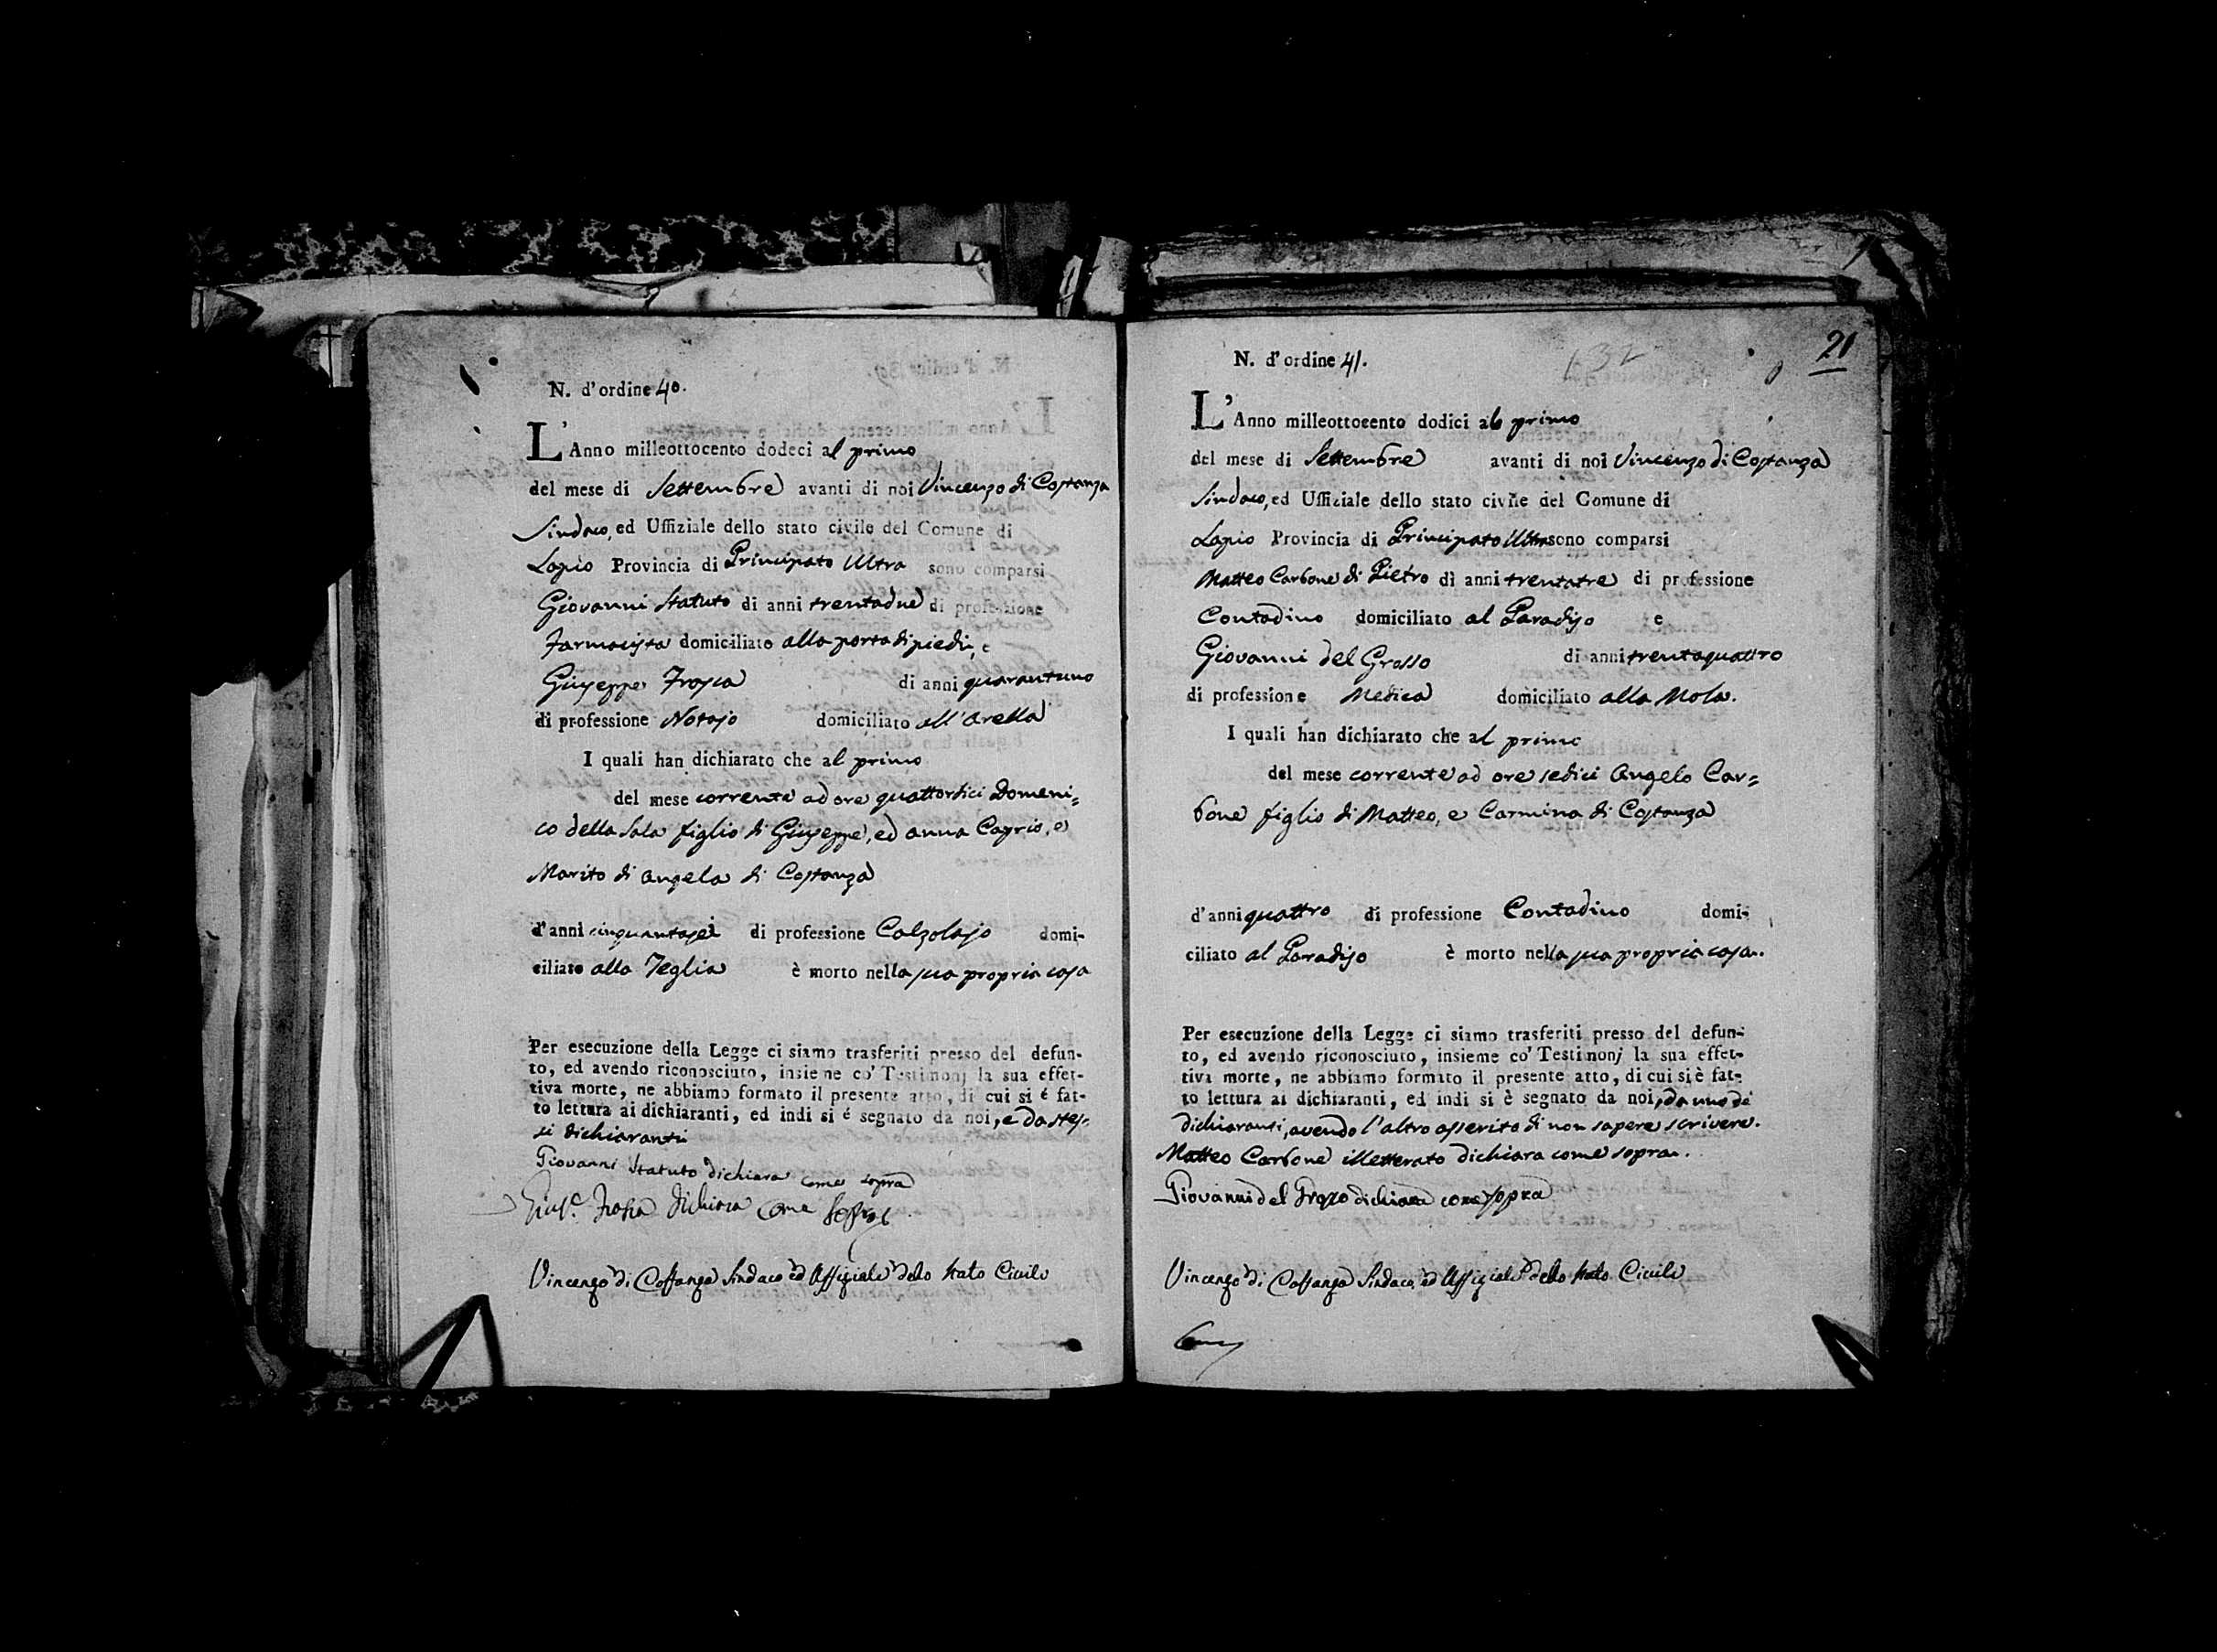 N. d'ordine 40.
L'Anno milleottocento dodeci al primo
del mese di Settembre avanti di noi Vincenzo di Costanza
Sindaco, ed Uffiziale dello stato civile del Comune di
Lapio Provincia di Principato Ultra sono comparsi
Giovanni Statuto di anni trentadue di professione
Farmacista domiciliato alla porta di piedi, e
Giuseppe Trosia di anni quarantuno
di professione Notajo domiciliato all'Arella
I quali han dichiarato che al primo
del mese corrente ad ore quattordici Domeni=
co della Sala figlio di Giuseppe, ed Anna Caprio, e
Marito di Angela di Costanza
d'anni cinquantasei di professione Calzolajo domi-
ciliato alla Teglia è morto nella sua propria casa
Per esecuzione della Legge ci siamo trasferiti presso del defun-
to, ed avendo riconosciuto, insieme co' Testimonj la sua effet-
tiva morte, ne abbiamo formato il presente atto, di cui si é fat-
to lettura ai dichiaranti, ed indi si é segnato da noi, e da stes=
si dichiaranti
Giovanni Statuto dichiara come sopra
Gius.e Trosia dichiara come sopra
Vincenzo di Costanza Sindaco ed Uffiziale dello Stato Civile
21
132
N. d'ordine 41.
L'Anno milleottocento dodici al primo
del mese di Settembre avanti di noi Vincenzo di Costanza
Sindaco, ed Uffiziale dello stato civile del Comune di
Lapio Provincia di Principato Ultra sono comparsi
Matteo Carbone di Pietro di anni trentatre di professione
Contadino domiciliato al Paradiso e
Giovanni del Grosso di anni trentaquattro
di professione Medico domiciliato alla Mola.
I quali han dichiarato che al primo
del mese corrente ad ore sedici Angelo Car=
bone figlio di Matteo, e Carmina di Costanza
d'anni quattro di professione Contadino domi-
ciliato al Paradiso è morto nella sua propria casa.
Per esecuzione della Legge ci siamo trasferiti presso del defun-
to, ed avendo riconosciuto, insieme co' Testimonj la sua effet-
tiva morte, ne abbiamo formato il presente atto, di cui si è fat-
to lettura ai dichiaranti, ed indi si è segnato da noi, da uno de'
dichiaranti, avendo l'altro asserito di non sapere scrivere.
Matteo Carbone illetterato dichiara come sopra.
Giovanni del Grosso dichiara come sopra
Vincenzo di Costanza Sindaco, ed Uffiziale dello Stato Civile